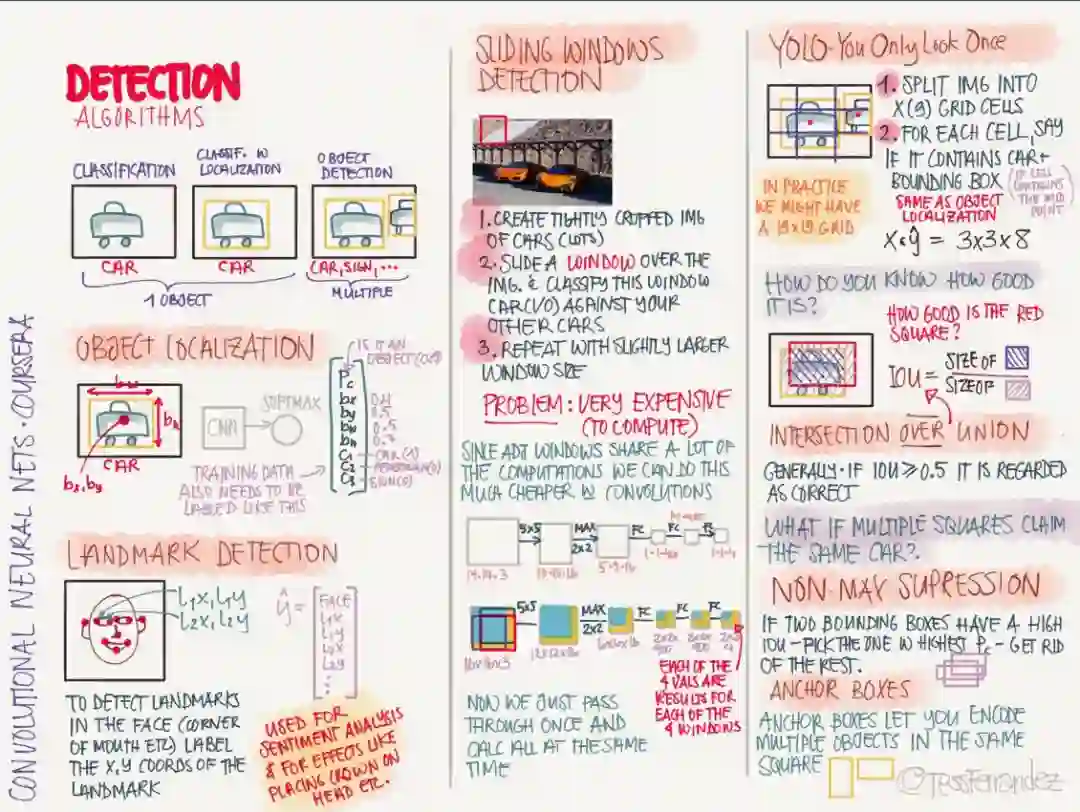 CONVOLUTIONAL NEURAL NETS · COURSERA
DETECTION
ALGORITHMS
CLASSIFICATION
CLASSIF. W
LOCALIZATION
OBJECT
DETECTION
CAR
CAR
CAR, SIGN, ...
1 OBJECT
MULTIPLE
OBJECT LOCALIZATION
bw
bh
CAR
bx, by
CNN
SOFTMAX
TRAINING DATA
ALSO NEEDS TO BE
LABELED LIKE THIS
IS IT AN
Pc
bx
by
bw
bh
C1
C2
C3
LANDMARK DETECTION
L1X, L1Y
L2X, L2Y
ŷ =
FACE
L1X
L1Y
L2X
L2Y
TO DETECT LANDMARKS
IN THE FACE (CORNER
OF MOUTH ETC) LABEL
THE X,Y COORDS OF THE
LANDMARK
USED FOR
SENTIMENT ANALYSIS
& FOR EFFECTS LIKE
PLACING CROWN ON
HEAD ETC.
SLIDING WINDOWS
DETECTION
1. CREATE TIGHTLY CROPPED IMG
OF CARS (LOTS)
2. SLIDE A WINDOW OVER THE
IMG. & CLASSIFY THIS WINDOW
CAR (1/0) AGAINST YOUR
OTHER CARS
3. REPEAT WITH SLIGHTLY LARGER
WINDOW SIZE
PROBLEM: VERY EXPENSIVE
(TO COMPUTE)
SINCE ADJ WINDOWS SHARE A LOT OF
THE COMPUTATIONS WE CAN DO THIS
MUCH CHEAPER W CONVOLUTIONS
5x5
MAX
2x2
FC
FC
5x5
MAX
2x2
FC
FC
FC
16x16x3
12x12x16
EACH OF THE
4 VALS ARE
RESULTS FOR
EACH OF THE
4 WINDOWS
NOW WE JUST PASS
THROUGH ONCE AND
CALC ALL AT THE SAME
TIME
YOLO-You Only Look Once
1. SPLIT IMG INTO
X(9) GRID CELLS
2. FOR EACH CELL, SAY
IF IT CONTAINS CAR +
BOUNDING BOX
(IF CELL
CONTAINS
THE MID
POINT)
SAME AS OBJECT
LOCALIZATION
IN PRACTICE
WE MIGHT HAVE
A 19x19 GRID
= 3x3x8
HOW DO YOU KNOW HOW GOOD
IT IS?
HOW GOOD IS THE RED
SQUARE?
IOU =
SIZE OF
SIZE OF
INTERSECTION OVER UNION
GENERALLY · IF IOU ≥ 0.5 IT IS REGARDED
AS CORRECT
WHAT IF MULTIPLE SQUARES CLAIM
THE SAME CAR?
NON-MAX SUPRESSION
IF TWO BOUNDING BOXES HAVE A HIGH
IOU - PICK THE ONE W HIGHEST Pc - GET RID
OF THE REST.
ANCHOR BOXES
ANCHOR BOXES LET YOU ENCODE
MULTIPLE OBJECTS IN THE SAME
SQUARE
@TessFerrandez